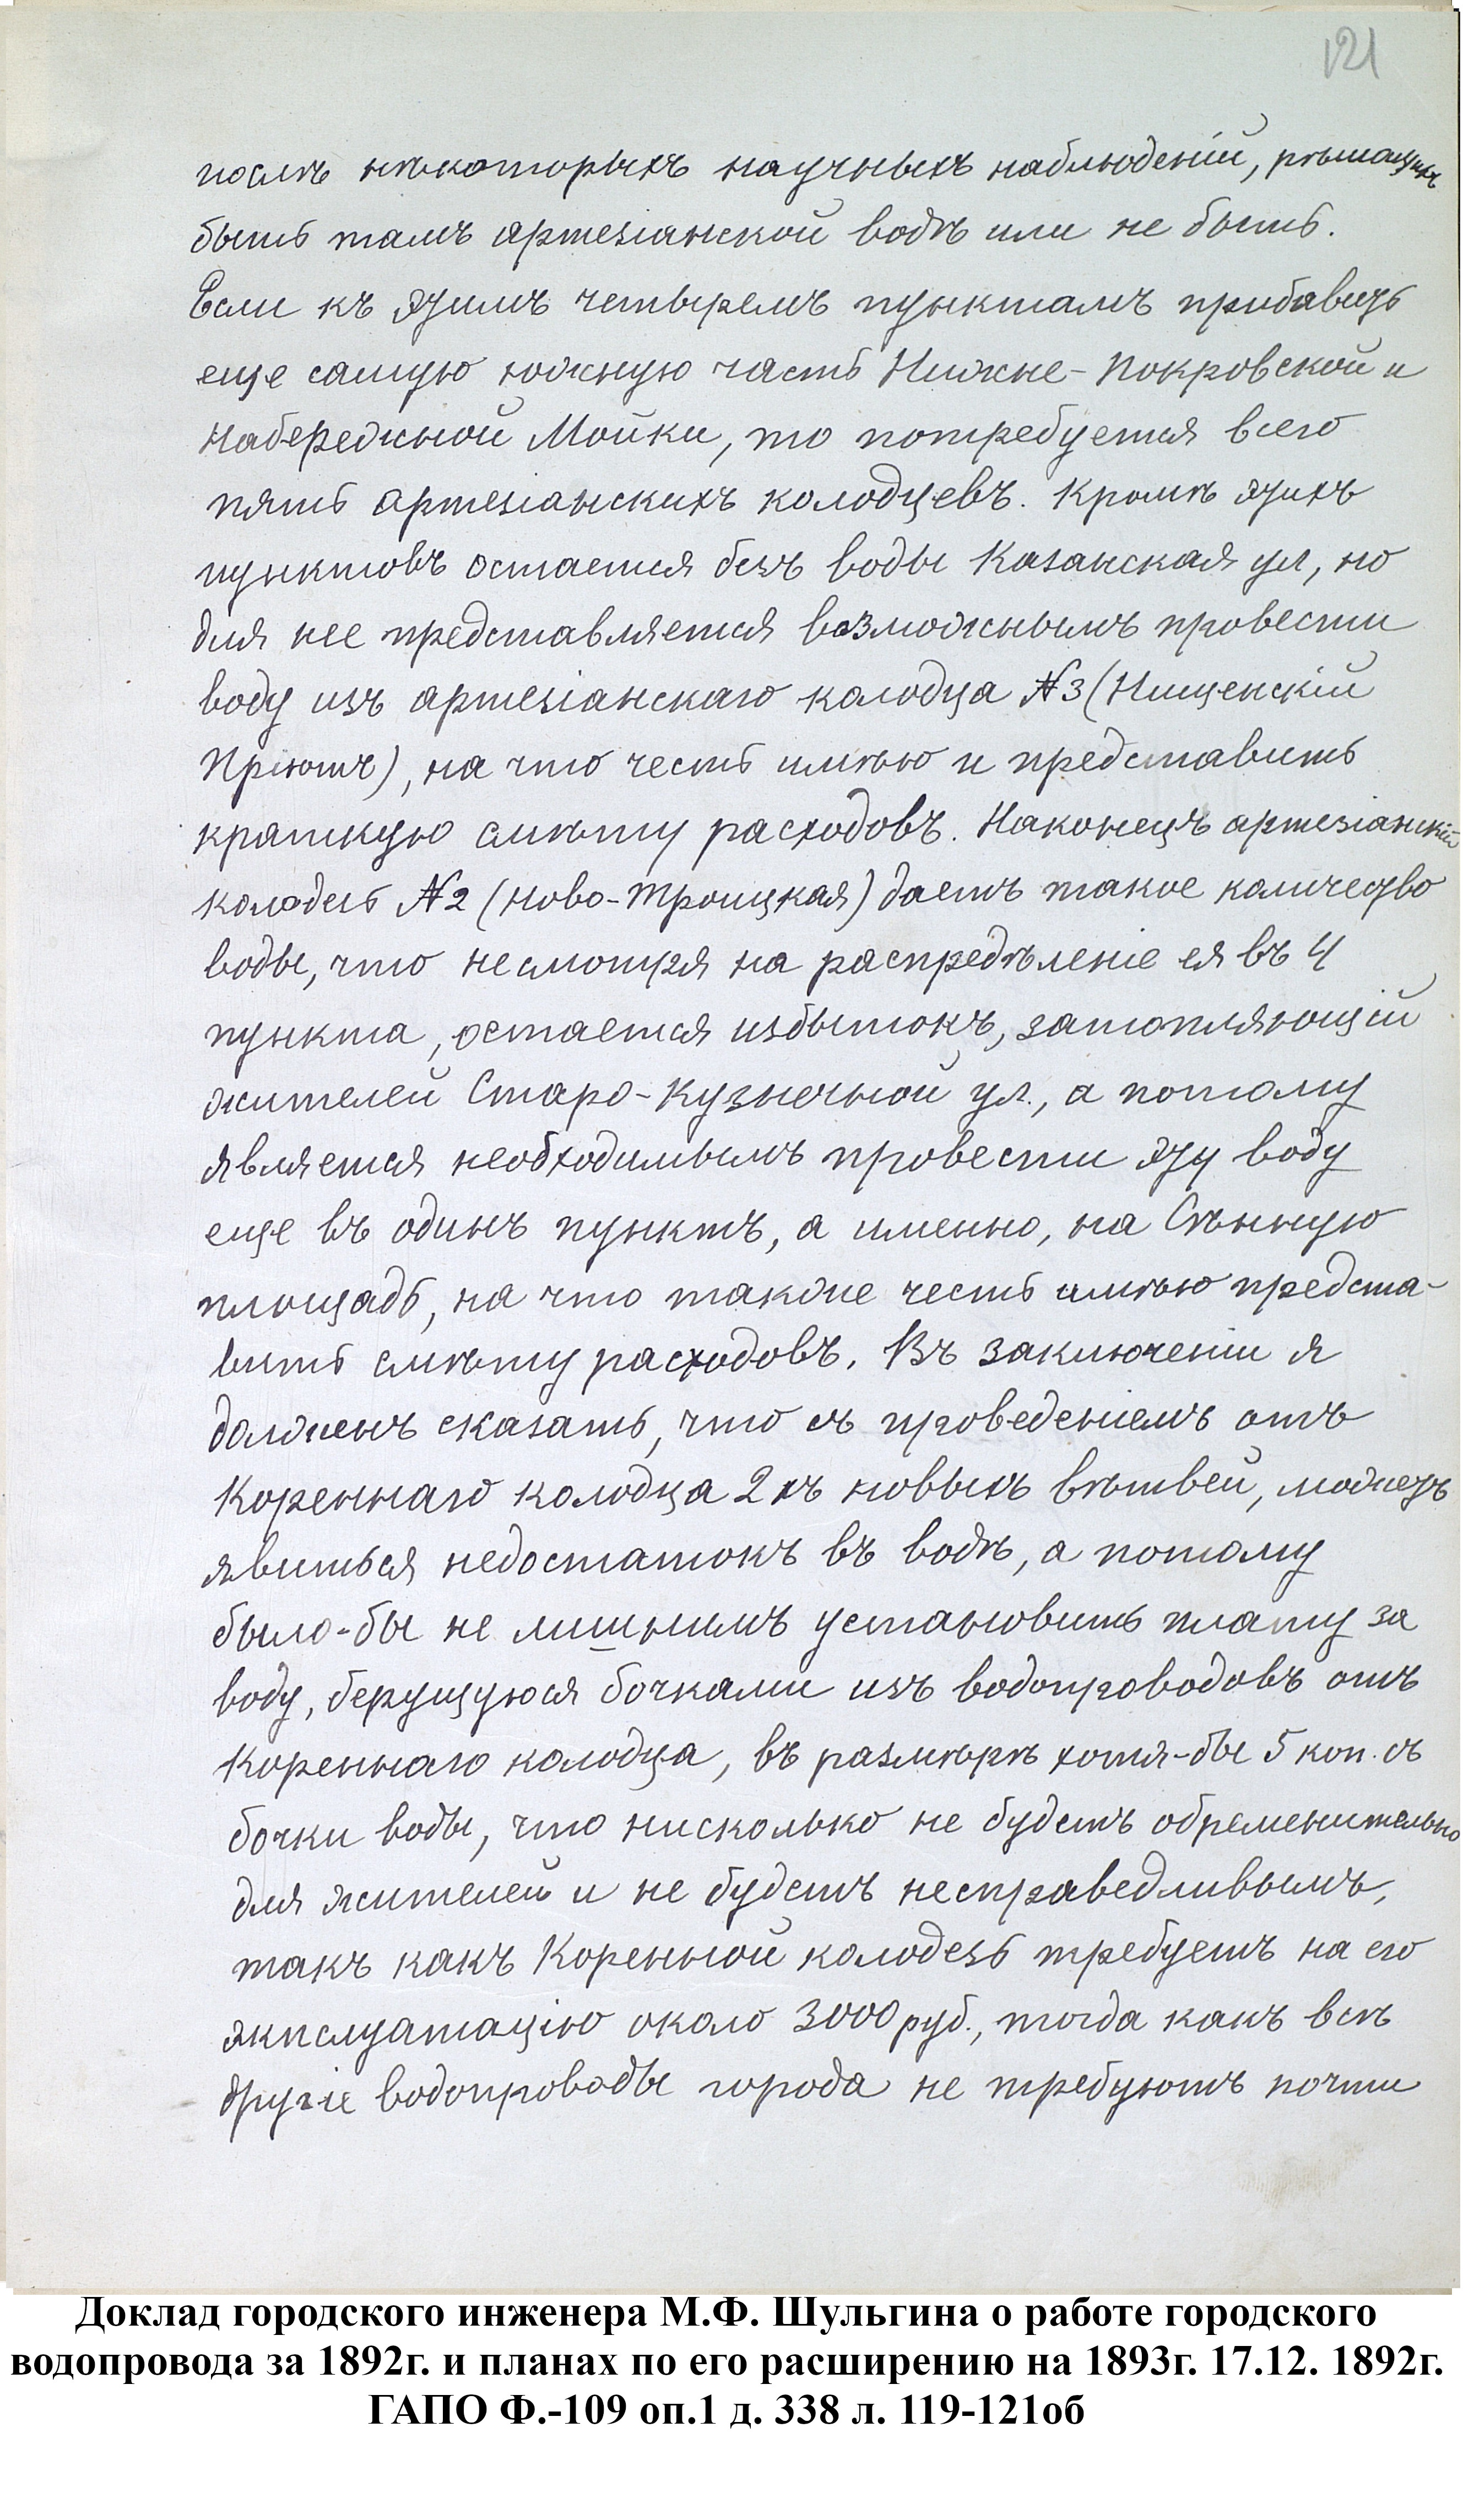 121
послѣ нѣкоторыхъ научныхъ наблюденій, рѣшающихъ
быть тамъ артезіанской водѣ или не быть.
Если къ этимъ четыремъ пунктамъ прибавить
еще самую южную часть Нижне-Покровской и
Набережной Мойки, то потребуется всего
пять артезіанскихъ колодцевъ. Кромѣ этихъ
пунктовъ остается безъ воды Казанская ул, но
для нее представляется возможнымъ провести
воду изъ артезіанскаго колодца №3 (Нищенскій
Пріютъ), на что честь имѣю и представить
краткую смѣту расходовъ. Наконецъ артезіанскій
колодезь №2 (Ново-Троицкая) даетъ такое количество
воды, что несмотря на распредѣленіе ея въ 4
пункта, остается избытокъ, затопляющій
жителей Старо-Кузнечной ул., а потому
является необходимымъ провести эту воду
еще въ одинъ пунктъ, а именно, на Сѣнную
площадь, на что также честь имѣю предста-
вить смѣту расходовъ. Въ заключеніи я
долженъ сказать, что съ проведеніемъ отъ
Кореннаго колодца 2хъ новыхъ вѣтвей, можетъ
явиться недостатокъ въ водѣ, а потому
было-бы не лишнимъ установить плату за
воду, берущуюся бочками изъ водопроводовъ отъ
Кореннаго колодца, въ размѣрѣ хотя-бы 5 коп. съ
бочки воды, что нисколько не будетъ обременительно
для жителей и не будетъ несправедливымъ,
такъ какъ Коренной колодезь требуетъ на его
эксплуатацію около 3000 руб., тогда какъ всѣ
другіе водопроводы города не требуютъ почти
Доклад городского инженера М.Ф. Шульгина о работе городского
водопровода за 1892г. и планах по его расширению на 1893г. 17.12. 1892г.
ГАПО Ф.-109 оп.1 д. 338 л. 119-121об